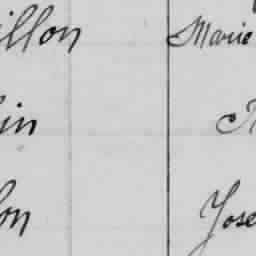 illon Marie
in
on Jose